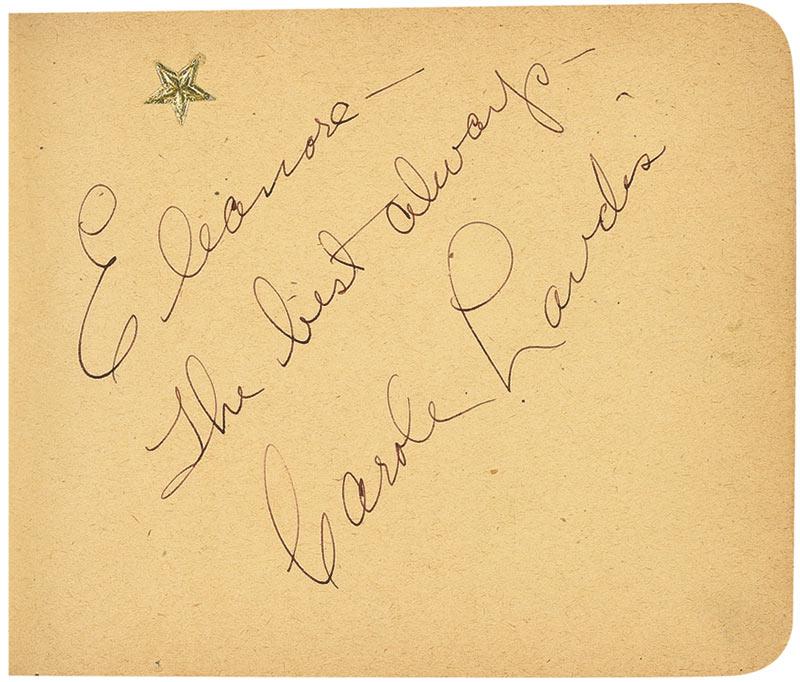 Eleanore —
The best always —
Carole Landis